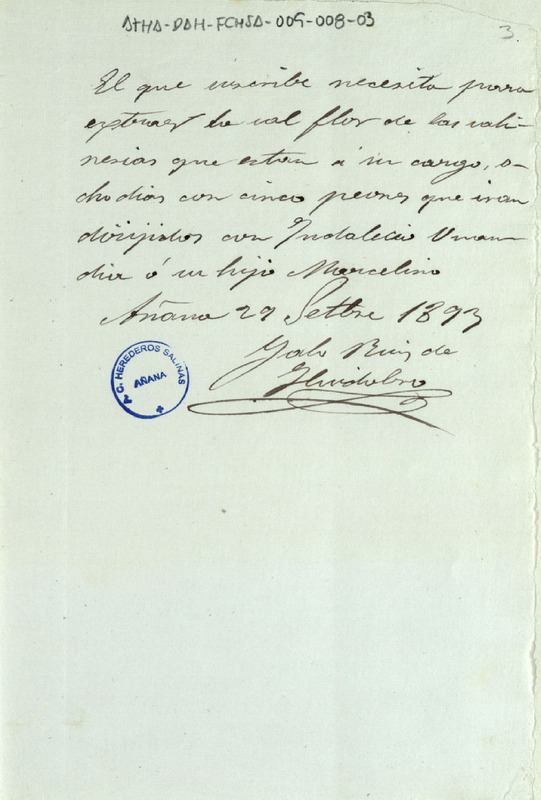 ATHA-DAH-FCHSA-009-008-03
3
El que uscribe necesita para
estraer la sal flor de las sali-
nesias que estan á su cargo, o-
cho dias con cinco peones que iran
dirijidos con Indalecio
dia ó su hijo Marcelino
Añana 29 Setbre 1893
Galo Ruiz de
Huidobro
C. HEREDEROS SALINAS
AÑANA